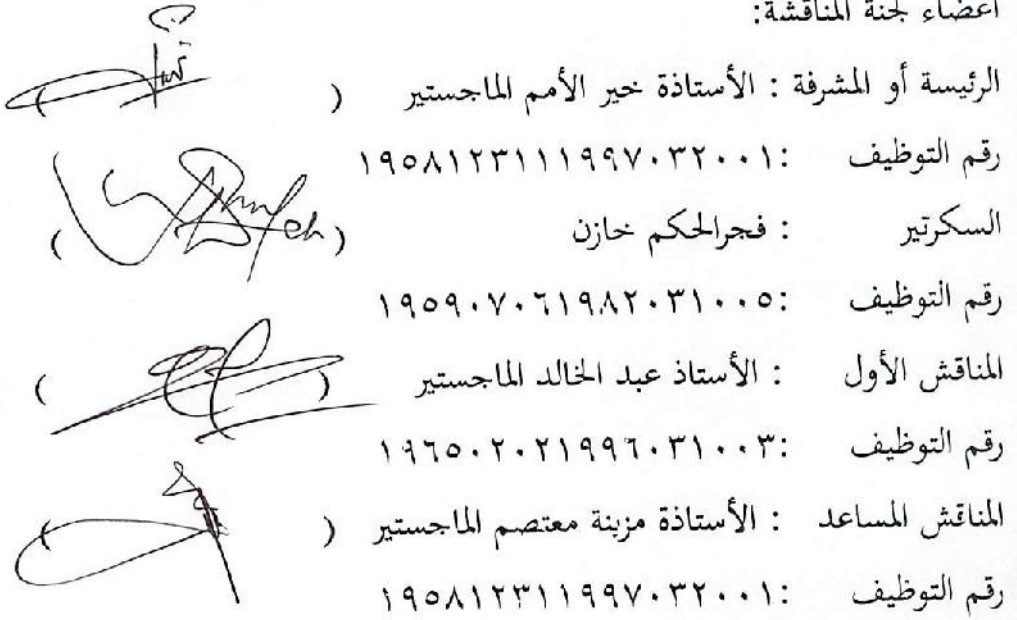 اعضاء لجنة المناقشة:
الرئيسة أو المشرفة : الأستاذة خير الأمم الماجستير ( )
رقم التوظيف :١٩٥٨١٢٣١١١٩٩٧٠٣٢٠٠١
السكرتير : فجرالحكم خازن ( )
رقم التوظيف :١٩٥٩٠٧٠٦١٩٨٢٠٣١٠٠٥
المناقش الأول : الأستاذ عبد الخالد الماجستير ( )
رقم التوظيف :١٩٦٥٠٢٠٢١٩٩٦٠٣١٠٠٣
المناقش المساعد : الأستاذة مزينة معتصم الماجستير ( )
رقم التوظيف :١٩٥٨١٢٣١١٩٩٧٠٣٢٠٠١